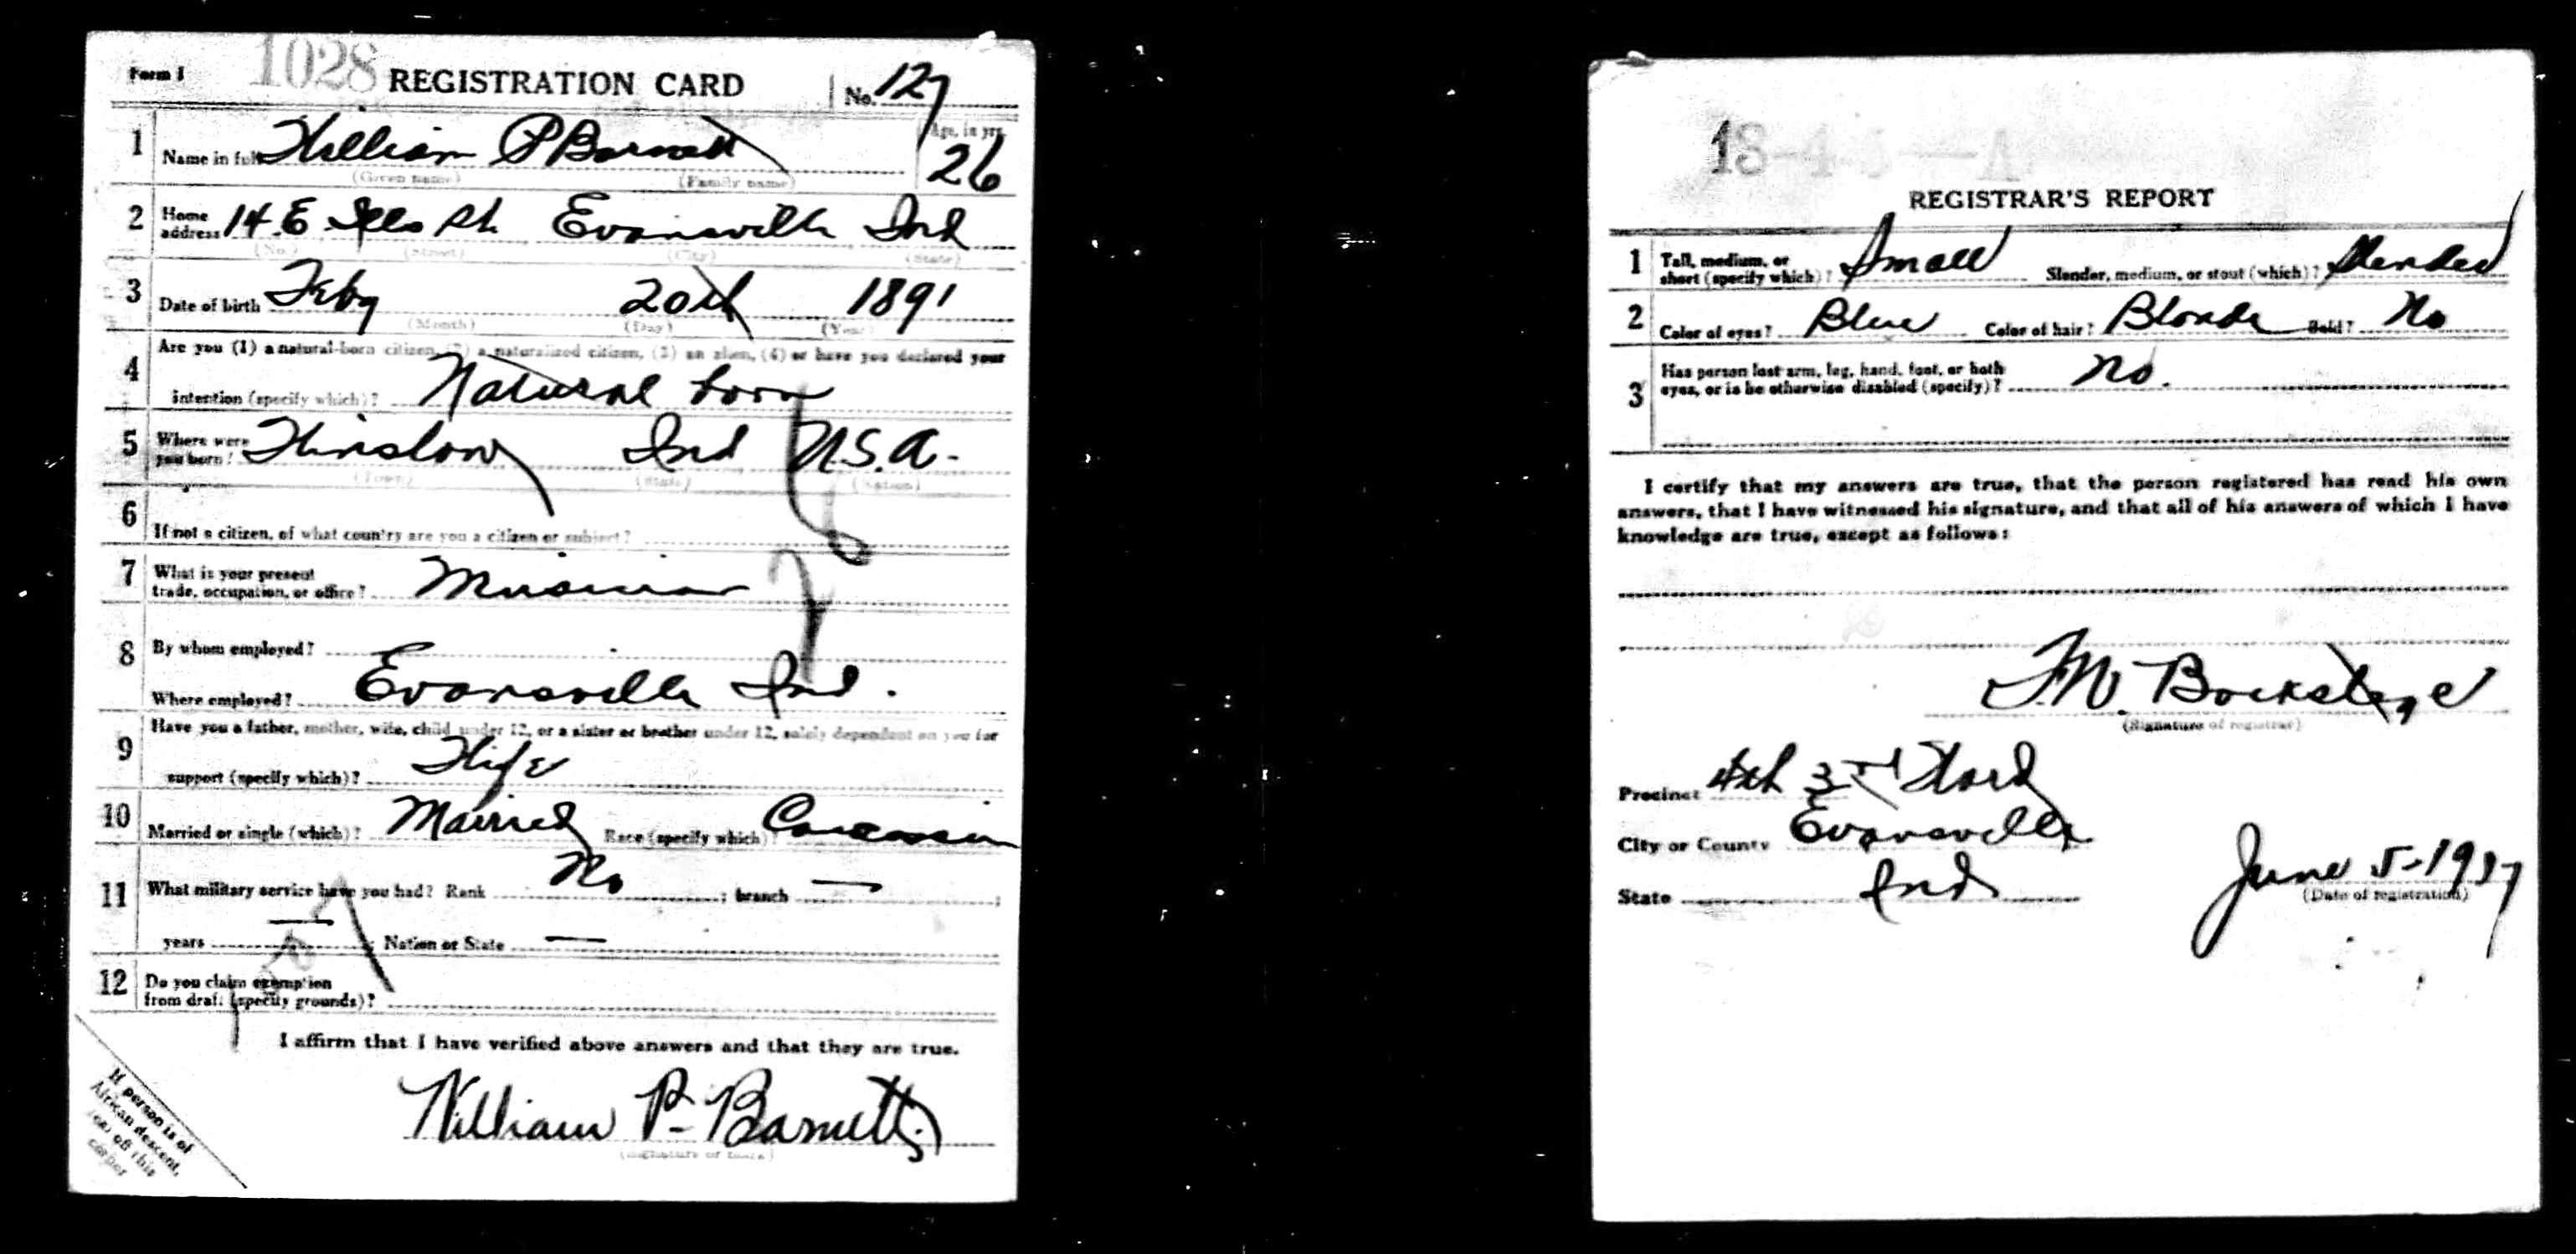 Form 1 1028 REGISTRATION CARD No. 127
1 Name in full William P Barnett Age, in yrs. 26
(Given name) (Family name)
2 Home address 14 E Ills St Evansville Ind
(No.) (Street) (City) (State)
3 Date of birth Feby 20th 1891
(Month) (Day) (Year)
4 Are you (1) a natural-born citizen, (2) a naturalized citizen, (3) an alien, (4) or have you declared your
intention (specify which)? Natural born
5 Where were you born? Winslow Ind U.S.A.
(Town) (State) (Nation)
6 If not a citizen, of what country are you a citizen or subject?
7 What is your present
trade, occupation, or office? Musician
8 By whom employed?
Where employed? Evansville Ind.
9 Have you a father, mother, wife, child under 12, or a sister or brother under 12, solely dependent on you for
support (specify which)? Wife
10 Married or single (which)? Married Race (specify which)? Caucasian
11 What military service have you had? Rank No ; branch — ;
years — ; Nation or State —
12 Do you claim exemption
from draft (specify grounds)?
I affirm that I have verified above answers and that they are true.
William P. Barnett
(Signature or mark)
If person is of
African descent,
tear off this
corner
REGISTRAR'S REPORT
1 Tall, medium, or
short (specify which)? Small Slender, medium, or stout (which)? Slender
2 Color of eyes? Blue Color of hair? Blonde Bald? No
3 Has person lost arm, leg, hand, foot, or both
eyes, or is he otherwise disabled (specify)? No.
I certify that my answers are true, that the person registered has read his own
answers, that I have witnessed his signature, and that all of his answers of which I have
knowledge are true, except as follows:
Bockstege
(Signature of registrar)
Precinct 4th 3rd Ward
City or County Evansville
State Ind
June 5-1917
(Date of registration)